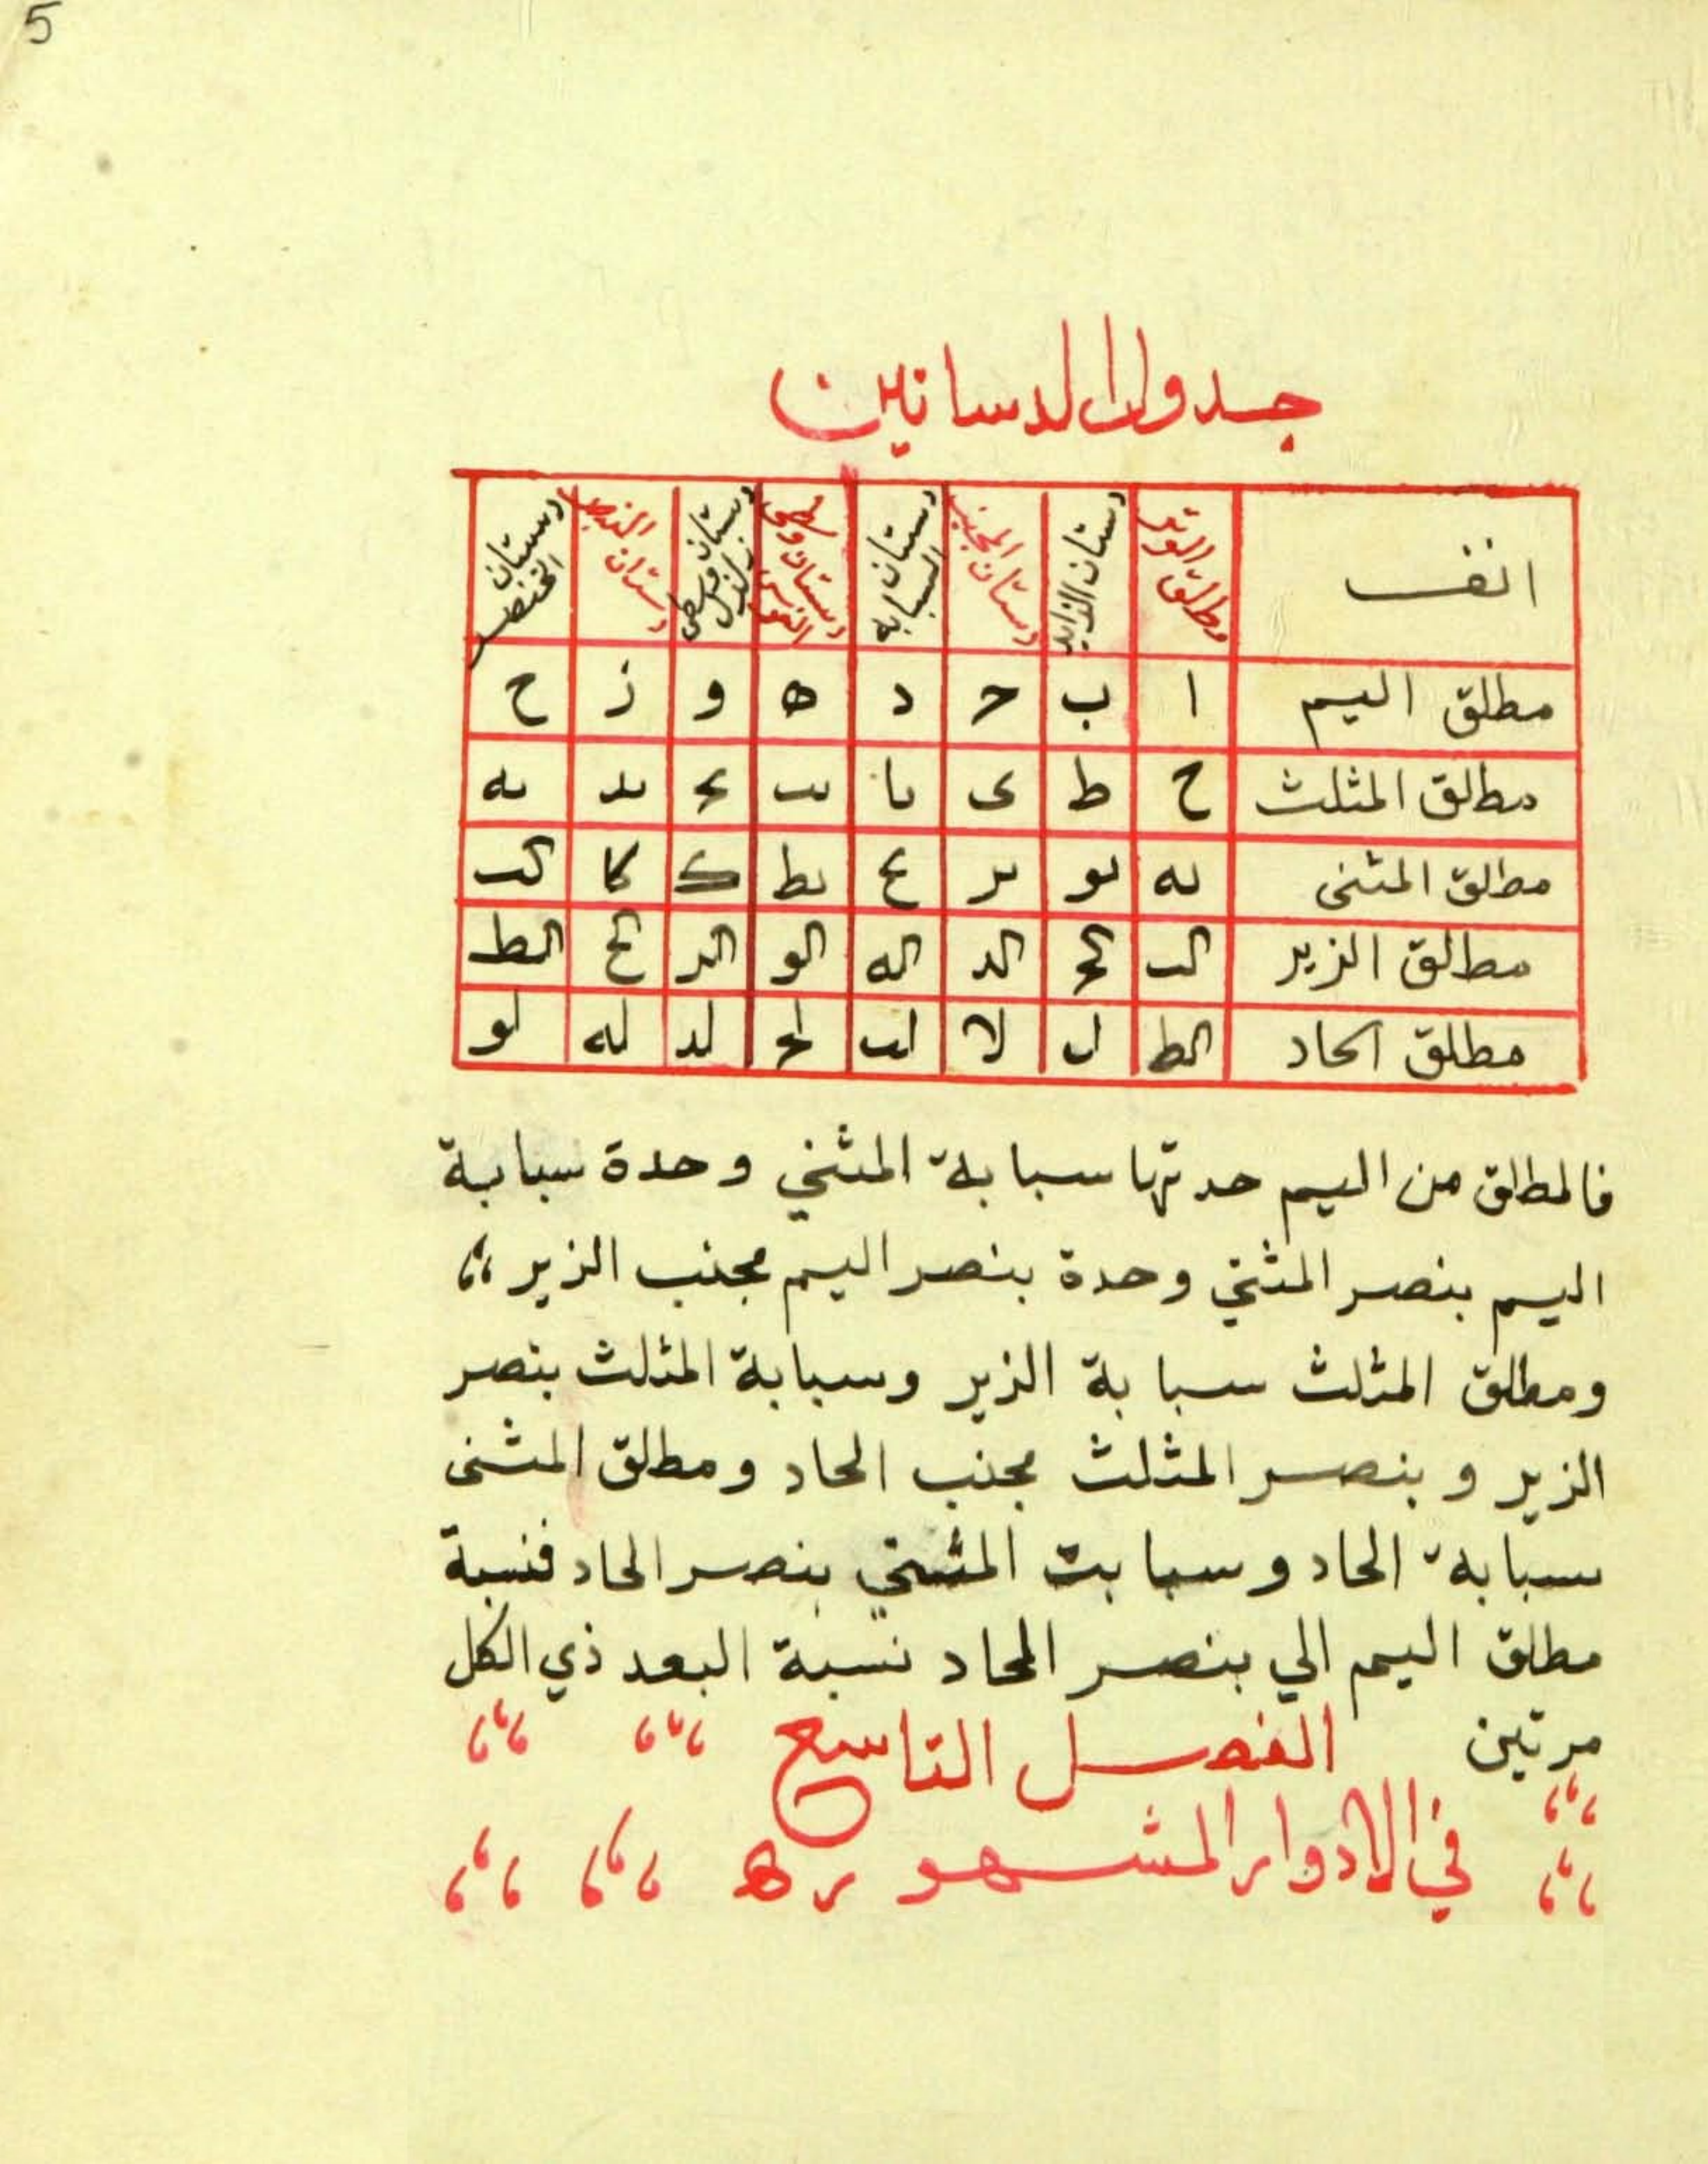 5
جدول الدساتين
انف مطلق الوتر دستان الزايد دستان المجنب دستان السبابه دستان وسطى الفرس دستان وسطى زلزل دستان البنصر دستان الخنصر
مطلق اليم ا ب ح د ه و ز ح
مطلق المثلث ح ط ى ىا ىٮ ىح ىد ىه
مطلق المثنى ىه ىو ىر ىح ىط ک كا كٮ
مطلق الزير كٮ كح كد كه كو كر كح كط
مطلق الحاد كط ل لا لٮ لح لد له لو
فالمطلق من اليم حدتها سبابة المثني وحدة سبابة
اليم بنصر المثني وحدة بنصر اليم مجنب الزير
ومطلق المثلث سبابة الزير وسبابة المثلث بنصر
الزير و بنصر المثلث مجنب الحاد ومطلق المثنى
سبابة الحاد و سبابت المثني بنصر الحاد فنسبة
مطلق اليم الي بنصر الحاد نسبة البعد ذي الكل
مرتين الفصل التاسع
في الادوار المشهوره